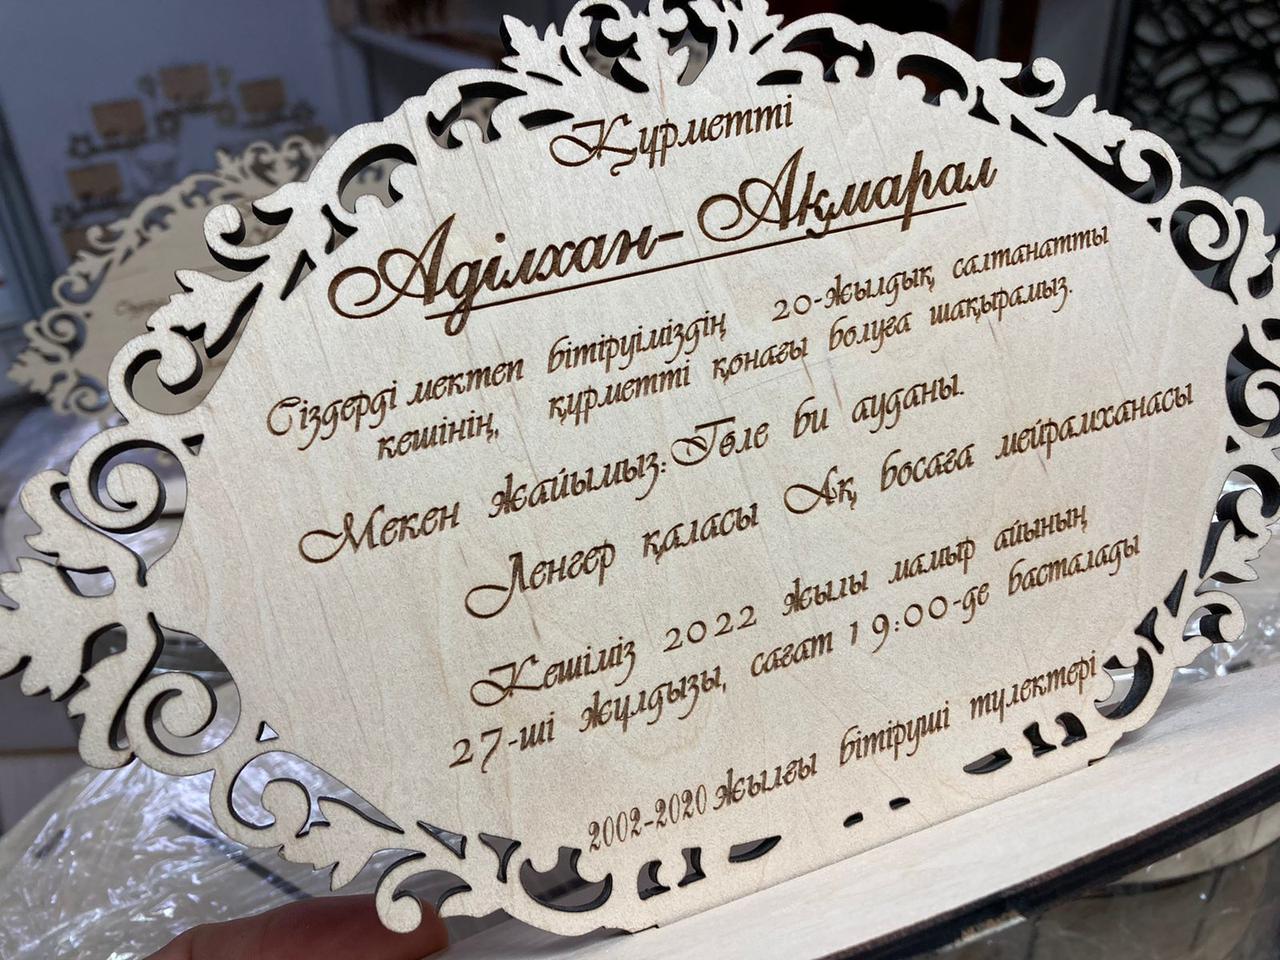 Құрметті
Аділхан- Ақмарал
Сіздерді мектеп бітіруіміздің 20-жылдық салтанатты
кешінің, құрметті қонағы болуға шақырамыз.
Мекен жайымыз: Төле би ауданы.
Ленгер қаласы Ақ босаға мейрамханасы
Кешіміз 2022 жылы мамыр айының
27-ші жұлдызы, сағат 19:00-де басталады
2002-2020 жылғы бітіруші түлектері